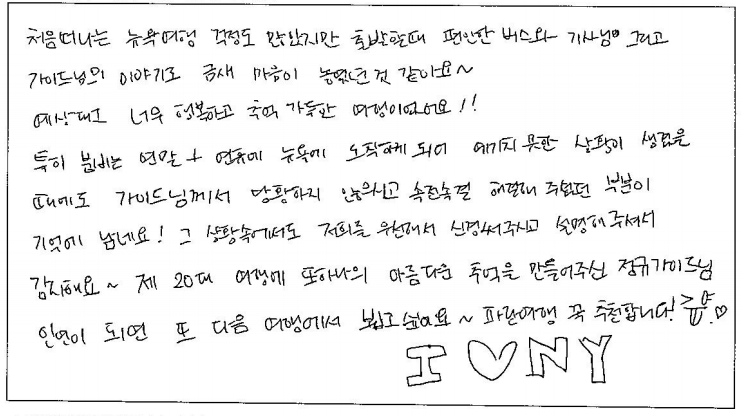 처음떠나는 뉴욕여행 걱정도 많았지만 출발할때 편안한 버스와 기사님 그리고
가이드님의 이야기로 금새 마음이 놓였던것 같아요~
예상대로 너무 행복하고 추억 가득한 여행이었어요!!
특히 붐비는 연말 + 연휴에 뉴욕에 도착하게 되어 예기치 못한 상황이 생겼을
때에도 가이드님께서 당황하지 않으시고 속전속결 해결해 주셨던 부분이
기억에 남네요! 그 상황속에서도 저희를 우선해서 신경써주시고 설명해주셔서
감사해요~ 제 20대 여행에 또하나의 아름다운 추억을 만들어주신 정규가이드님
인연이 되면 또 다음 여행에서 뵙고싶어요~ 파란여행 꼭 추천합니다!
I ♡ NY